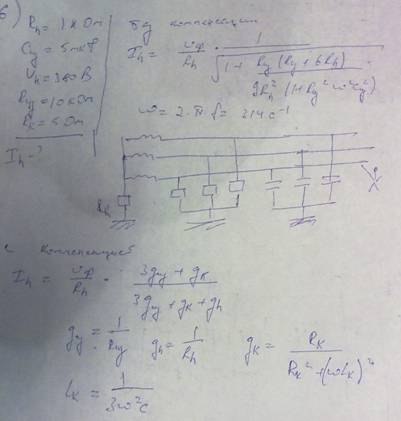 6)
Rh = 1 кОм
Cy = 5 мкФ
Uл = 380 В
Ry = 10 кОм
Rк = 5 Ом
Ih - ?
Без компенсации
Ih = Uф/Rh · 1/√(1 + Ry(Ry + 6Rh)/(9Rh²(1 + Ry²ω²Cy²)))
ω = 2·π·f = 314 с⁻¹
Rк
с компенсацией
Ih = Uф/Rh · (3gy + gк)/(3gy + gк + gh)
gy = 1/Ry gh = 1/Rh gк = Rк/(Rк² + (ωLк)²)
Lк = 1/(3ω²C)